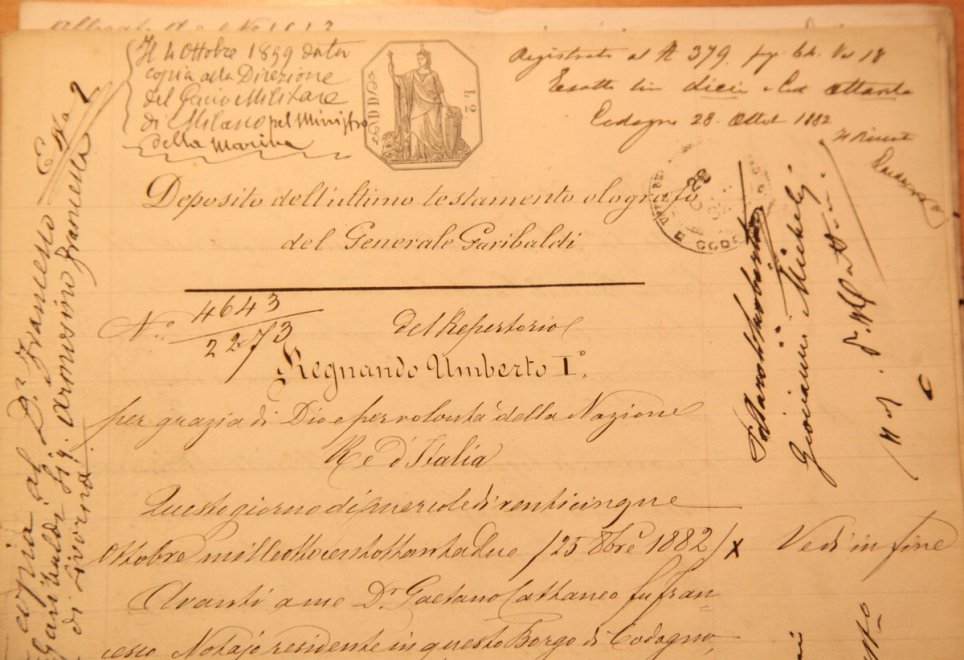 Il 4 Ottobre 1899 data
copia alla Direzione
del Genio Militare
di Milano pel Ministro
della Marina
L2
Registrato al N 379 Vol 18
Esatte lire dieci ottanta
Codogno 28 1882
Deposito dell'ultimo testamento olografo
del Generale Garibaldi
N.º 4643
2273
del Repertorio
Regnando Umberto Iº.
per grazia di Dio e per volontà della Nazione
Re d'Italia
Quest giorno di mercoledì venticinque
Ottobre mille ottocento ottantadue / 25 8bre 1882 / x Vedi in fine
Avanti a me Dr. Gaetano Cattaneo fu Fran-
cesco Notajo residente in questo Borgo di Codogno,
copia al Dr. Francesco
Garibaldi Sig. Armosino Francesca
di Livorno
Giovanni Micheli